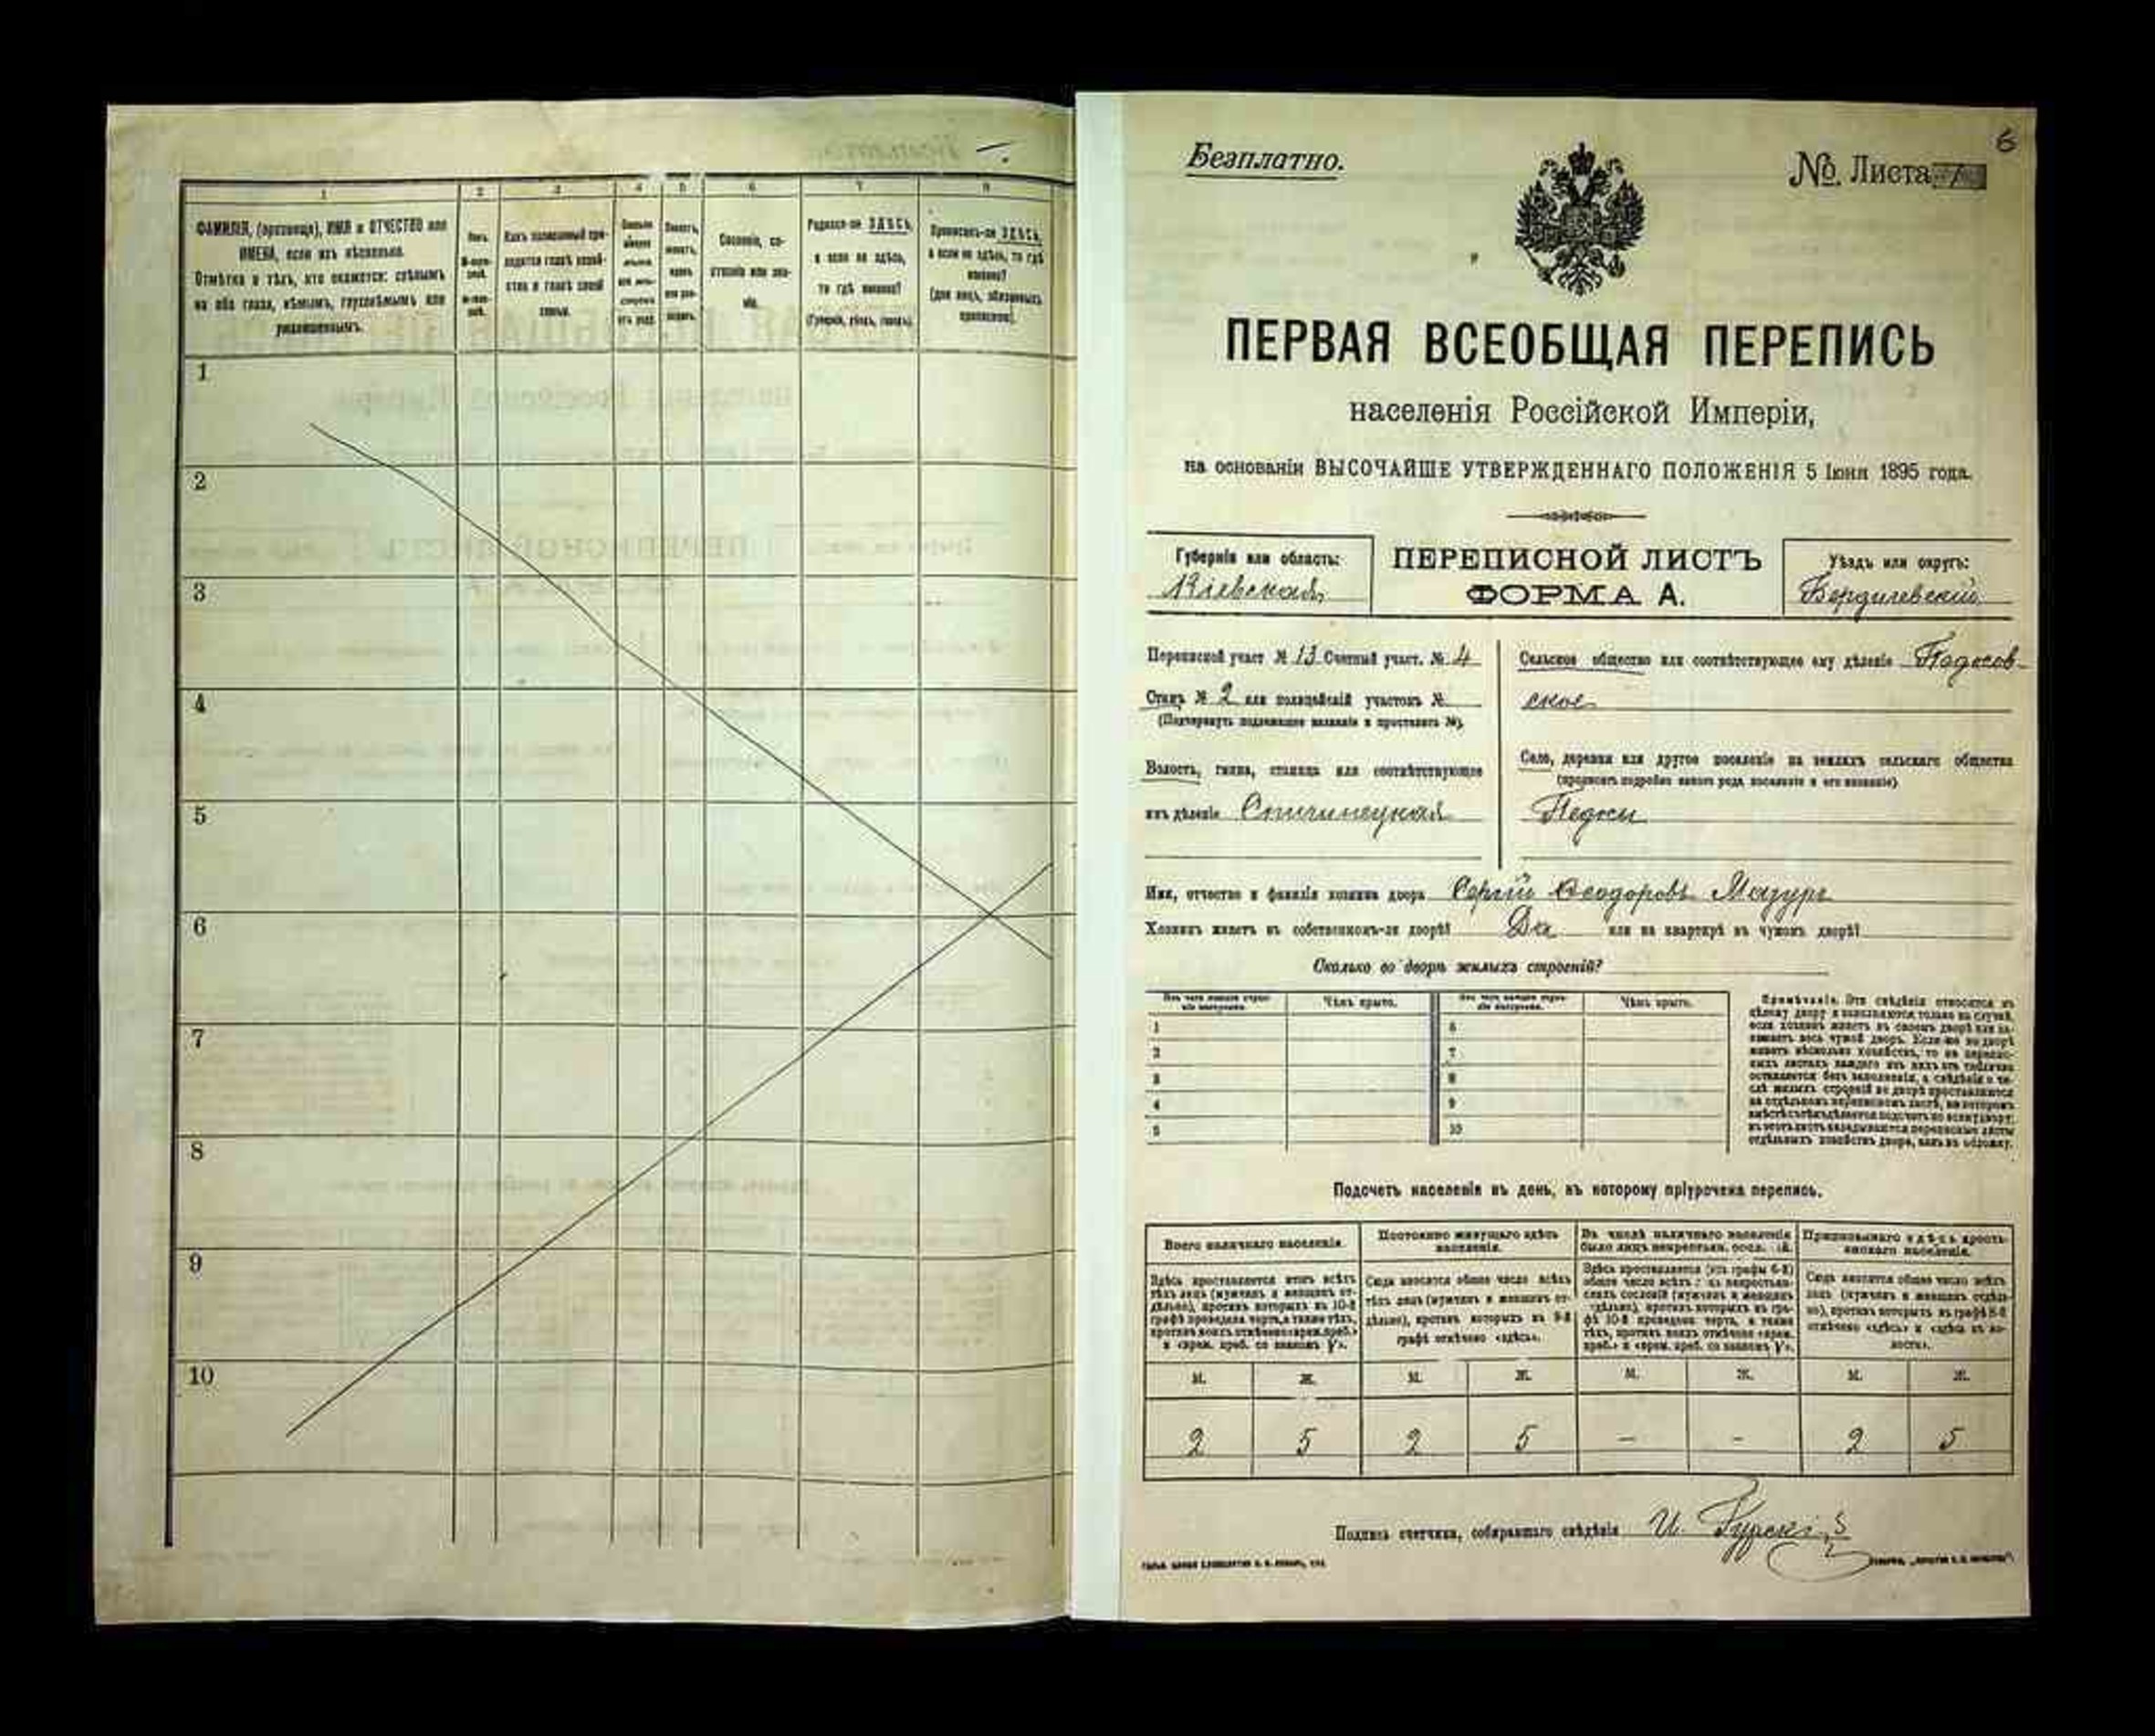 1
2
3
4
5
6
7
8
ФАМИЛІЯ, (прозвище), ИМЯ и ОТЧЕСТВО или
ИМЕНА, если ихъ нѣсколько.
Отмѣтка о тѣхъ, кто окажется: слѣпымъ
на оба глаза, нѣмымъ, глухонѣмымъ или
умалишеннымъ.
Полъ.
Какъ записанный при-
ходится главѣ хозяй-
ства и главѣ своей
семьи.
Сословіе, со-
стояніе или зва-
ніе.
Родился-ли ЗДѢСЬ,
а если не здѣсь,
то гдѣ именно?
(Губернія, уѣздъ, городъ).
Приписанъ-ли ЗДѢСЬ,
а если не здѣсь, то гдѣ
именно?
(для лицъ, обязанныхъ
припискою).
1
2
3
4
5
6
7
8
9
10
6
Безплатно.
№ Листа
ПЕРВАЯ ВСЕОБЩАЯ ПЕРЕПИСЬ
населенія Россійской Имперіи,
на основаніи ВЫСОЧАЙШЕ УТВЕРЖДЕННАГО ПОЛОЖЕНІЯ 5 Іюня 1895 года.
Губернія или область:
Кіевская
ПЕРЕПИСНОЙ ЛИСТЪ
ФОРМА А.
Уѣздъ или округъ:
Бердичевскій
Переписной участ № 13 Счетный участ. № 4
Станъ № 2 или полицейскій участокъ №
(Подчеркнуть подлежащее названіе и проставить №).
Волость, гмина, станица или соотвѣтствующее
имъ дѣленіе Спичинецкая
Сельское общество или соотвѣтствующее ему дѣленіе Педосов-
ское
Село, деревня или другое поселеніе на земляхъ сельскаго общества
(прописать подробно какого рода поселеніе и его названіе)
Педоси
Имя, отчество и фамилія хозяина двора Сергій Ѳеодоровъ Мазуръ
Хозяинъ живетъ въ собственномъ-ли дворѣ? Да или на квартирѣ въ чужомъ дворѣ?
Сколько во дворѣ жилыхъ строеній?
Изъ чего жилое строе-
ніе построено.
Чѣмъ крыто.
Изъ чего жилое строе-
ніе построено.
Чѣмъ крыто.
1
2
3
4
5
6
7
8
9
10
Примѣчаніе. Эти свѣдѣнія относятся къ
цѣлому двору и заполняются только въ случаѣ,
если хозяинъ живетъ въ своемъ дворѣ или за-
нимаетъ весь чужой дворъ. Если-же во дворѣ
живетъ нѣсколько хозяйствъ, то на перепис-
ныхъ листахъ каждаго изъ нихъ эта табличка
оставляется безъ заполненія, а свѣдѣнія о чи-
слѣ жилыхъ строеній во дворѣ проставляются
на отдѣльномъ переписномъ листѣ, на которомъ
вмѣстѣ съ тѣмъ дѣлается подсчетъ по всему двору;
въ этотъ листъ вкладываются переписные листы
отдѣльныхъ хозяйствъ двора, какъ въ обложку.
Подсчетъ населенія въ день, къ которому пріурочена перепись.
Всего наличнаго населенія.
Постоянно живущаго здѣсь
населенія.
Въ числѣ наличнаго населенія
было лицъ некрестьян. сосл.
Приписаннаго здѣсь кресть-
янскаго населенія.
Здѣсь проставляется итогъ всѣхъ
тѣхъ лицъ (мужчинъ и женщинъ от-
дѣльно), противъ которыхъ въ 10-й
графѣ проведена черта, а также тѣхъ,
противъ коихъ отмѣчено «врем. преб.»
и «врем. преб. со знакомъ V».
Сюда вносится общее число всѣхъ
тѣхъ лицъ (мужчинъ и женщинъ от-
дѣльно), противъ которыхъ въ 9-й
графѣ отмѣчено «здѣсь».
Здѣсь проставляется (изъ графы 6-й)
общее число всѣхъ лицъ некрестьян-
скихъ сословій (мужчинъ и женщинъ
отдѣльно), противъ которыхъ въ гра-
фѣ 10-й проведена черта, а также
тѣхъ, противъ коихъ отмѣчено «врем.
преб.» и «врем. преб. со знакомъ V».
Сюда вносится общее число всѣхъ
лицъ (мужчинъ и женщинъ отдѣль-
но), противъ которыхъ въ графѣ 8-й
отмѣчено «здѣсь» и «здѣсь въ во-
лости».
М. Ж. М. Ж. М. Ж. М. Ж.
2 5 2 5 – - 2 5
Подпись счетчика, собиравшаго свѣдѣнія И. Гурскій